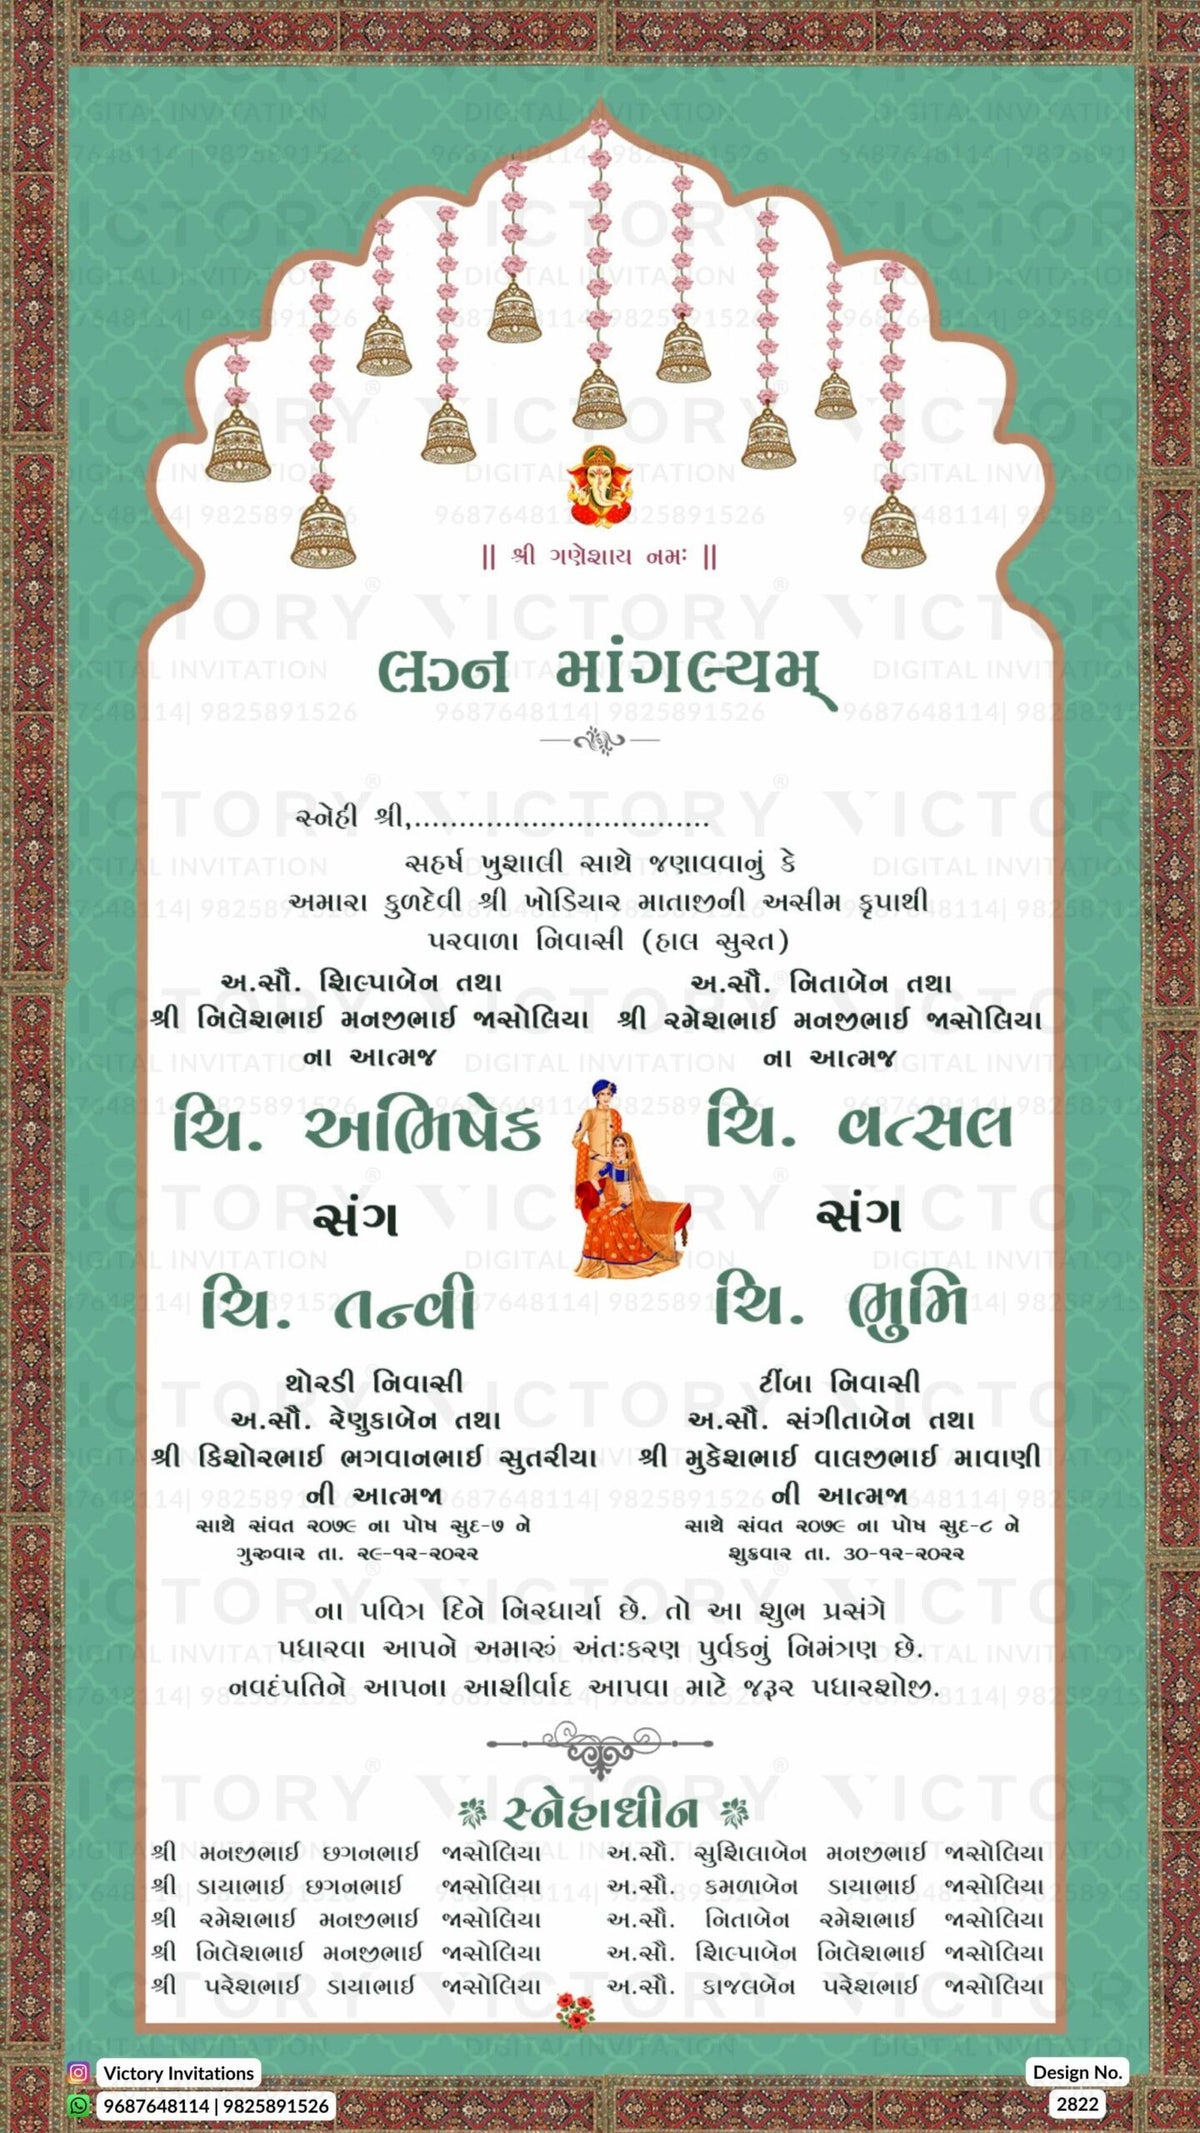 || શ્રી ગણેશાય નમઃ ||
લગ્ન માંગલ્યમ્
સ્નેહી શ્રી,.................................
સહર્ષ ખુશાલી સાથે જણાવવાનું કે
અમારા કુળદેવી શ્રી ખોડિયાર માતાજીની અસીમ કૃપાથી
પરવાળા નિવાસી (હાલ સુરત)
અ.સૌ. શિલ્પાબેન તથા
શ્રી નિલેશભાઈ મનજીભાઈ જાસોલિયા
ના આત્મજ
ચિ. અભિષેક
સંગ
ચિ. તન્વી
થોરડી નિવાસી
અ.સૌ. રેણુકાબેન તથા
શ્રી કિશોરભાઈ ભગવાનભાઈ સુતરીયા
ની આત્મજા
સાથે સંવત ૨૦૭૯ ના પોષ સુદ-૭ ને
ગુરુવાર તા. ૨૯-૧૨-૨૦૨૨
અ.સૌ. નિતાબેન તથા
શ્રી રમેશભાઈ મનજીભાઈ જાસોલિયા
ના આત્મજ
ચિ. વત્સલ
સંગ
ચિ. ભુમિ
ટીંબા નિવાસી
અ.સૌ. સંગીતાબેન તથા
શ્રી મુકેશભાઈ વાલજીભાઈ માવાણી
ની આત્મજા
સાથે સંવત ૨૦૭૯ ના પોષ સુદ-૮ ને
શુક્રવાર તા. ૩૦-૧૨-૨૦૨૨
ના પવિત્ર દિને નિરધાર્યા છે. તો આ શુભ પ્રસંગે
પધારવા આપને અમારું અંતઃકરણ પુર્વકનું નિમંત્રણ છે.
નવદંપતિને આપના આશીર્વાદ આપવા માટે જરૂર પધારશોજી.
સ્નેહાધીન
શ્રી મનજીભાઈ છગનભાઈ જાસોલિયા
શ્રી ડાયાભાઈ છગનભાઈ જાસોલિયા
શ્રી રમેશભાઈ મનજીભાઈ જાસોલિયા
શ્રી નિલેશભાઈ મનજીભાઈ જાસોલિયા
શ્રી પરેશભાઈ ડાયાભાઈ જાસોલિયા
અ.સૌ. સુશિલાબેન મનજીભાઈ જાસોલિયા
અ.સૌ. કમળાબેન ડાયાભાઈ જાસોલિયા
અ.સૌ. નિતાબેન રમેશભાઈ જાસોલિયા
અ.સૌ. શિલ્પાબેન નિલેશભાઈ જાસોલિયા
અ.સૌ. કાજલબેન પરેશભાઈ જાસોલિયા
Victory Invitations
9687648114 | 9825891526
Design No.
2822
VICTORY®
DIGITAL INVITATION
9687648114| 9825891526